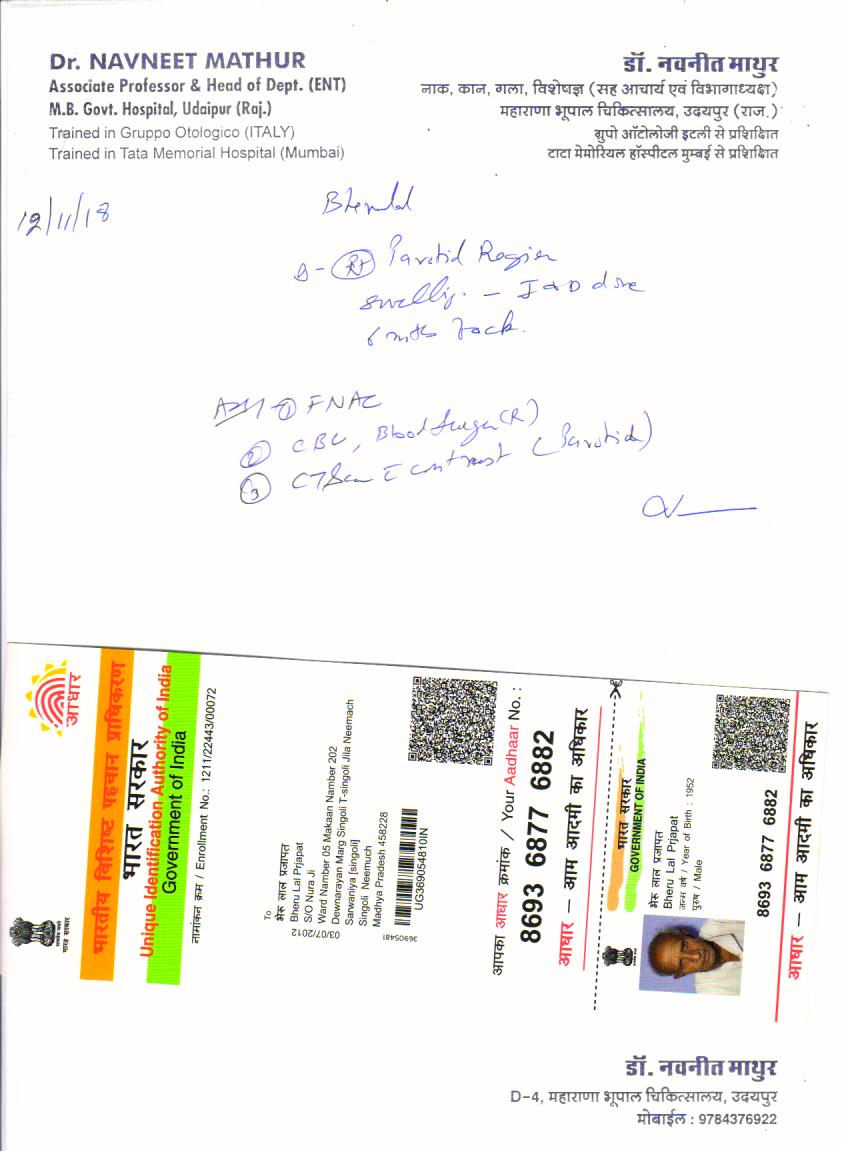 Dr. NAVNEET MATHUR
Associate Professor & Head of Dept. (ENT)
M.B. Govt. Hospital, Udaipur (Raj.)
Trained in Gruppo Otologico (ITALY)
Trained in Tata Memorial Hospital (Mumbai)
डॉ. नवनीत माथुर
नाक, कान, गला, विशेषज्ञ (सह आचार्य एवं विभागाध्यक्ष)
महाराणा भूपाल चिकित्सालय, उदयपुर (राज.)
ग्रुपो ऑटोलोजी इटली से प्रशिक्षित
टाटा मेमोरियल हॉस्पीटल मुम्बई से प्रशिक्षित
12/11/18
Parotid Region
- I & D done
6 back.
① FNAC
② CBC, Blood Sugar (R)
③ CT Scan contrast (Parotid)
आधार
भारत सरकार
भारतीय विशिष्ट पहचान प्राधिकरण
भारत सरकार
Unique Identification Authority of India
Government of India
नामांकन क्रम / Enrollment No.: 1211/22443/00072
To
भेरू लाल प्रजापत
Bheru Lal Prjapat
S/O Nura Ji
Ward Number 05 Makaan Namber 202
Dewnarayan Marg Singoli T-singoli Jila Neemach
Sarwaniya [singoli]
Singoli Neemuch
Madhya Pradesh 458228
03/07/2012
UG369054810IN
आपका आधार क्रमांक / Your Aadhaar No. :
8693 6877 6882
आधार – आम आदमी का अधिकार
भारत सरकार
GOVERNMENT OF INDIA
भेरू लाल प्रजापत
Bheru Lal Prjapat
जन्म वर्ष / Year of Birth : 1952
पुरुष / Male
8693 6877 6882
आधार – आम आदमी का अधिकार
डॉ. नवनीत माथुर
D-4, महाराणा भूपाल चिकित्सालय, उदयपुर
मोबाईल : 9784376922